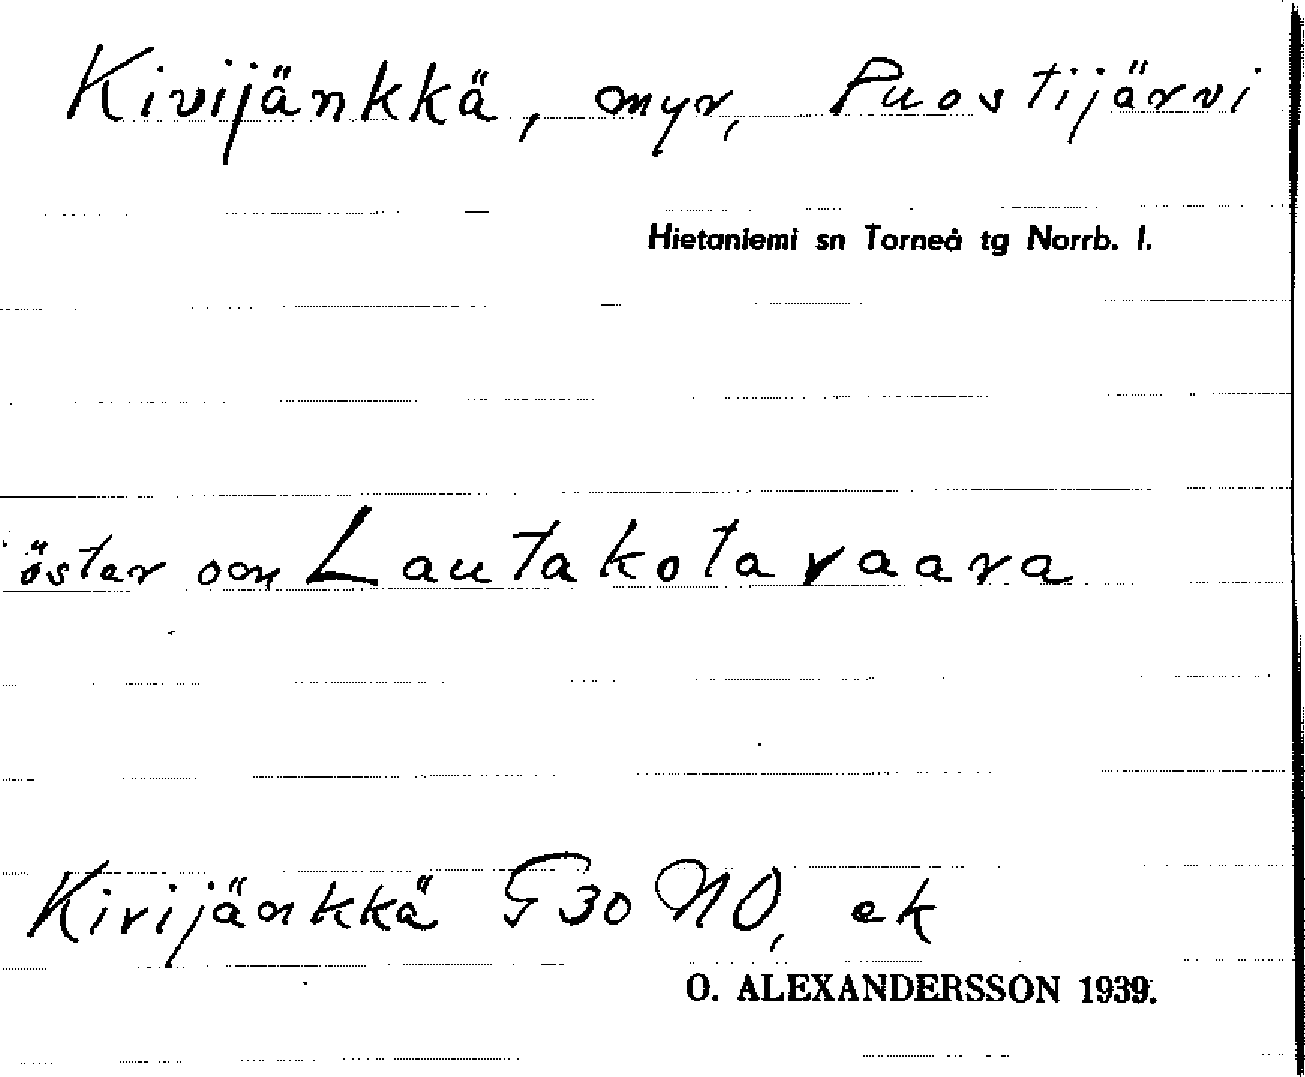 Kivijänkkä, myr, Puostijärvi
Hietaniemi sn Torneå tg Norrb. l.
öster om Lautakotavaara
Kivijänkkä G30 NO, ek
O. ALEXANDERSSON 1939.